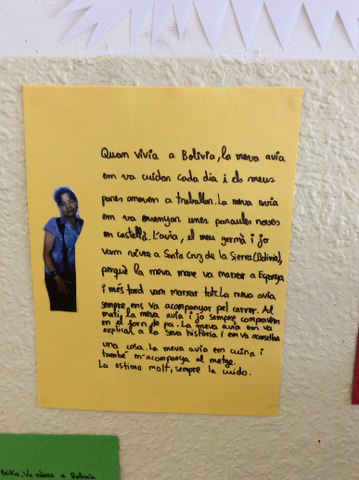 Quan vivia a Bolívia, la meva avia
em va cuidar cada dia i els meus
pares anaven a treballar. La meva avia
em va ensenyar unes paraules noves
en castellà. L'avia, el meu germà i jo
vam viure a Santa Cruz de la Sierra (Bolívia),
perquè la meva mare va marxar a Espanya
i més tard vam marxar tots. La meva avia
sempre ens va acompanyar pel carrer. Al
matí, la meva avia i jo sempre compravem
en el forn de pa. La meva avia em va
explicar a la seva historia i em va aconsellar
una cosa. La meva avia em cuina i
també m'acompanya al metge.
La estimo molt, sempre la cuido.
Va viure a Bolívia